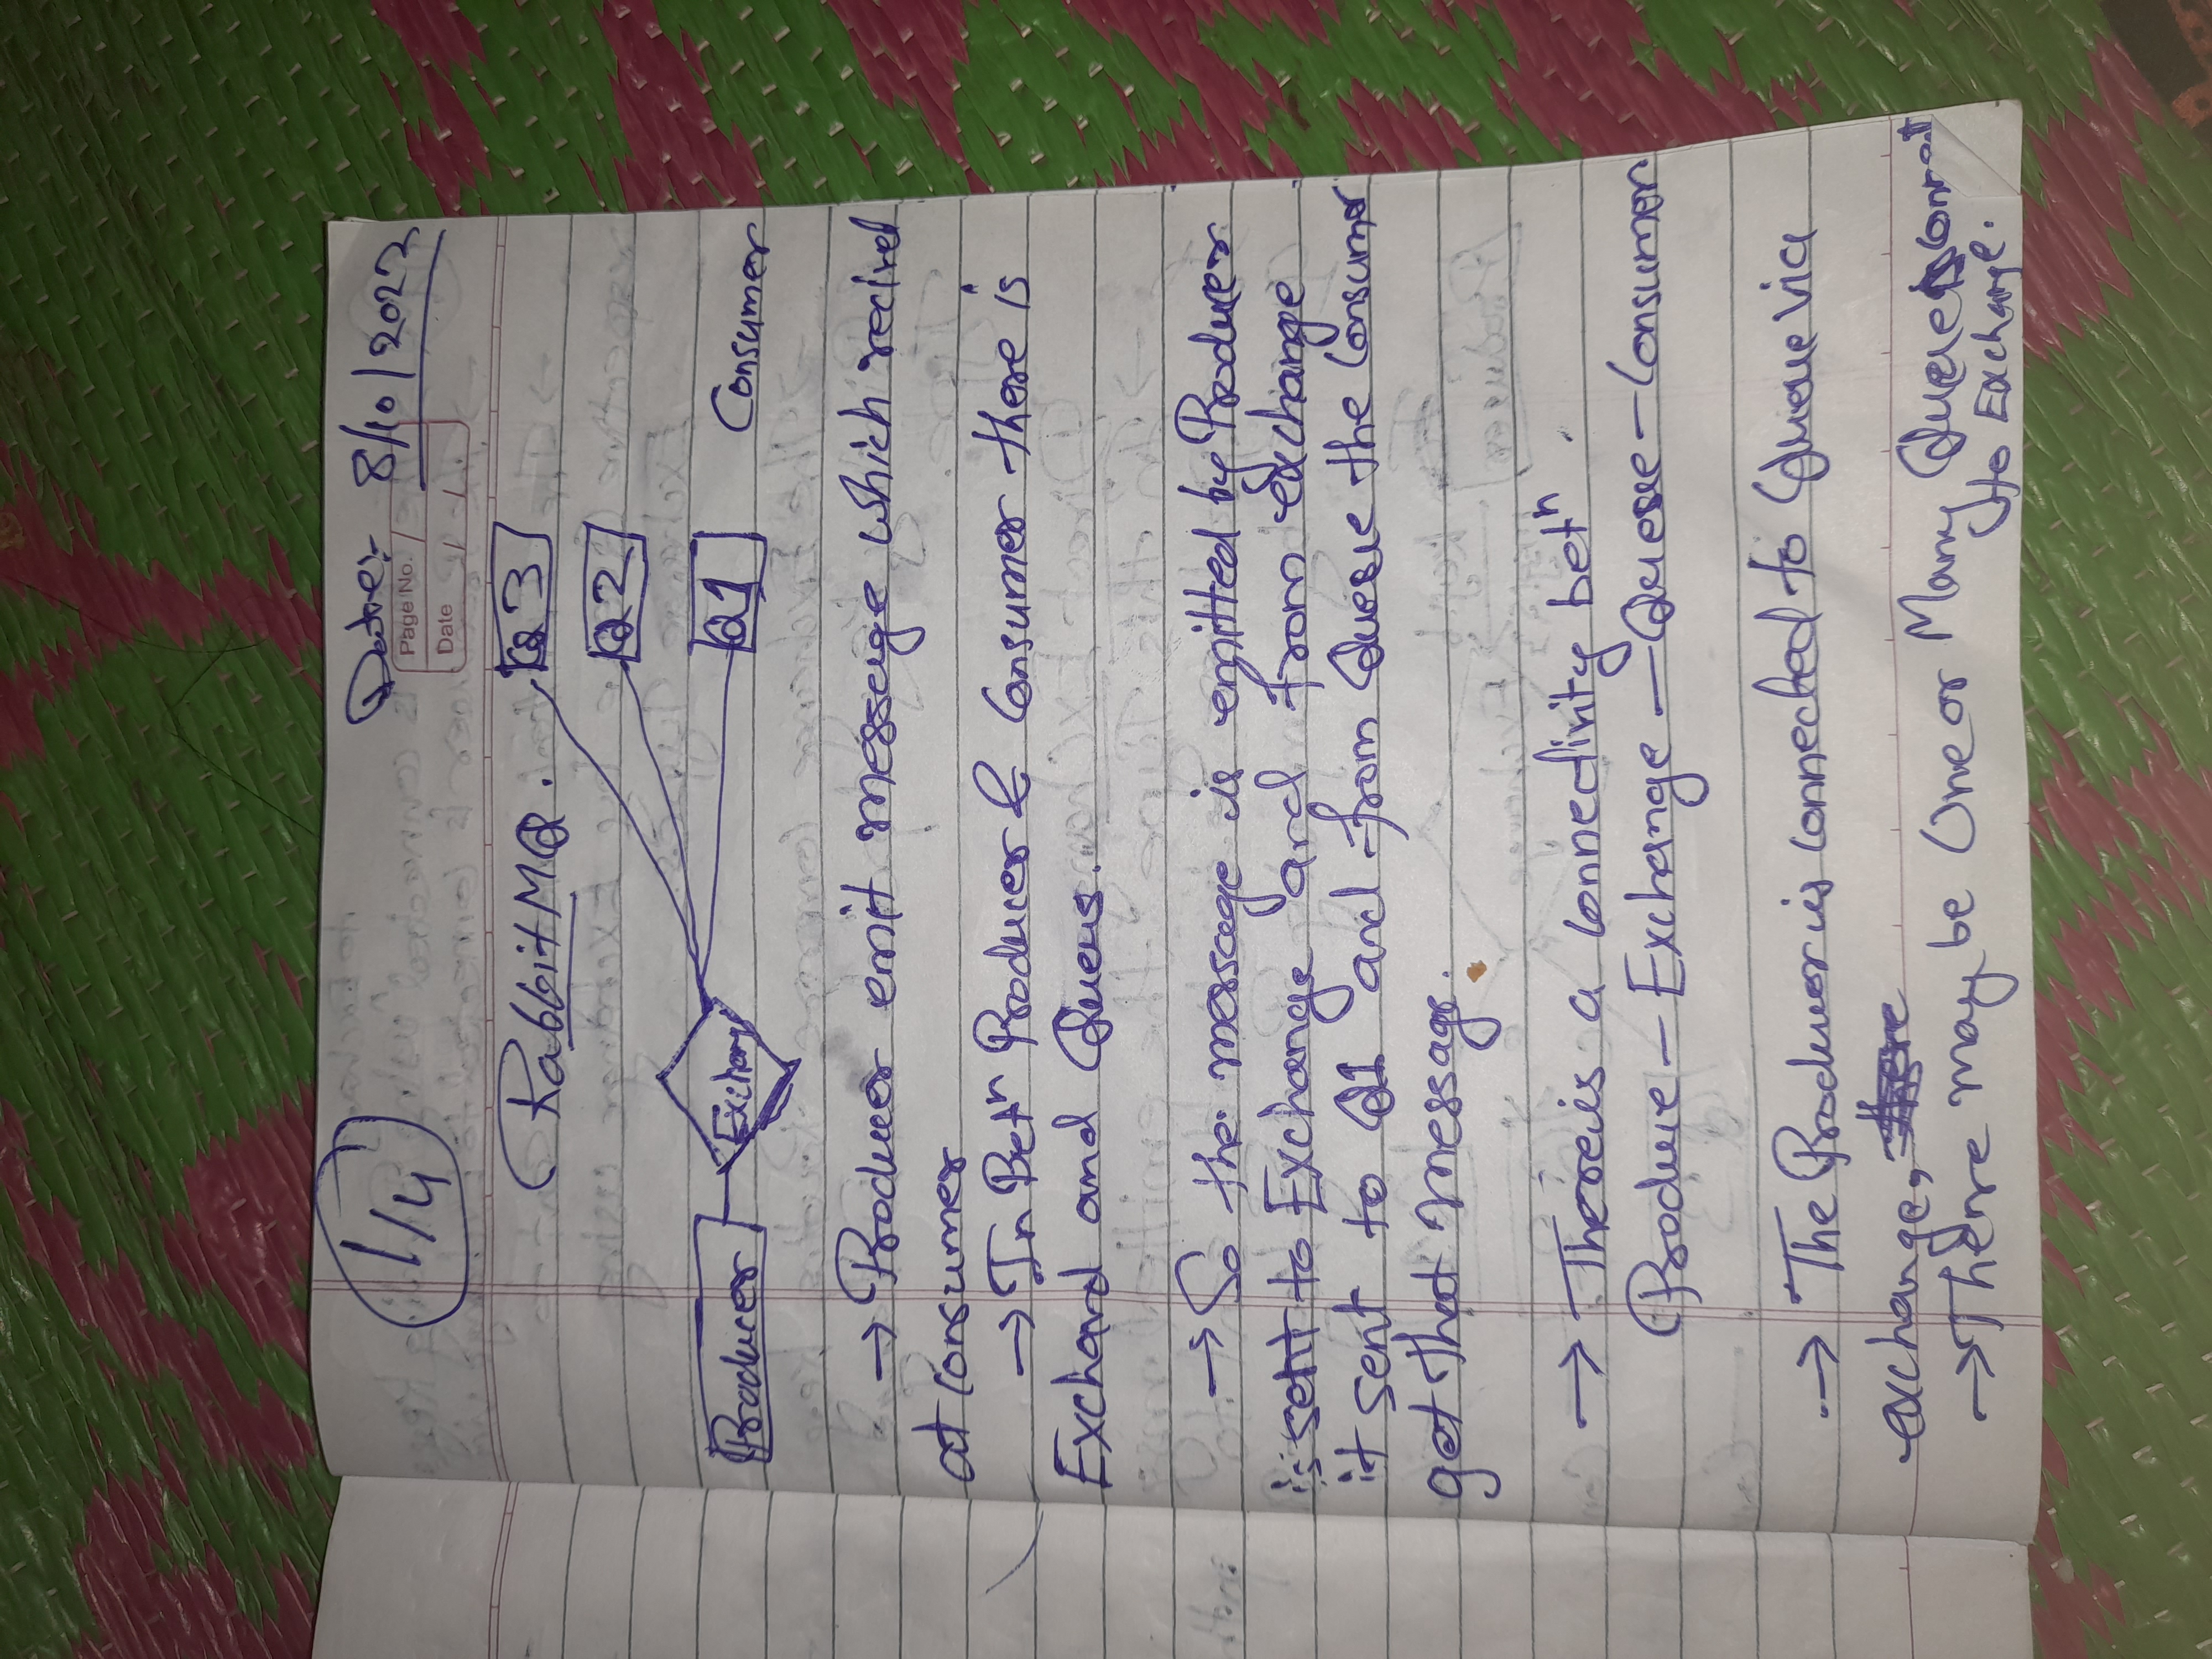 1/4
Date:- 8/10/2022
Page No. /
Date / /
RabbitMQ.
Q3
Q2
Producer Exchange Q1 Consumer
→ Producer emit message which recived
at consumer
→ In Betⁿ Producer & Consumer there is
Exchand and Queus.
→ So the message is emitted by Producer
is sent to Exchange and from exchange
it sent to Q1 and from Queue the Consumer
get that message.
→ There is a connectivity betⁿ
Produce – Exchange – Queue – Consumer
→ The Producer is connected to Queue via
exchange,
→ There may be One or Many Queue is
to Exchange.